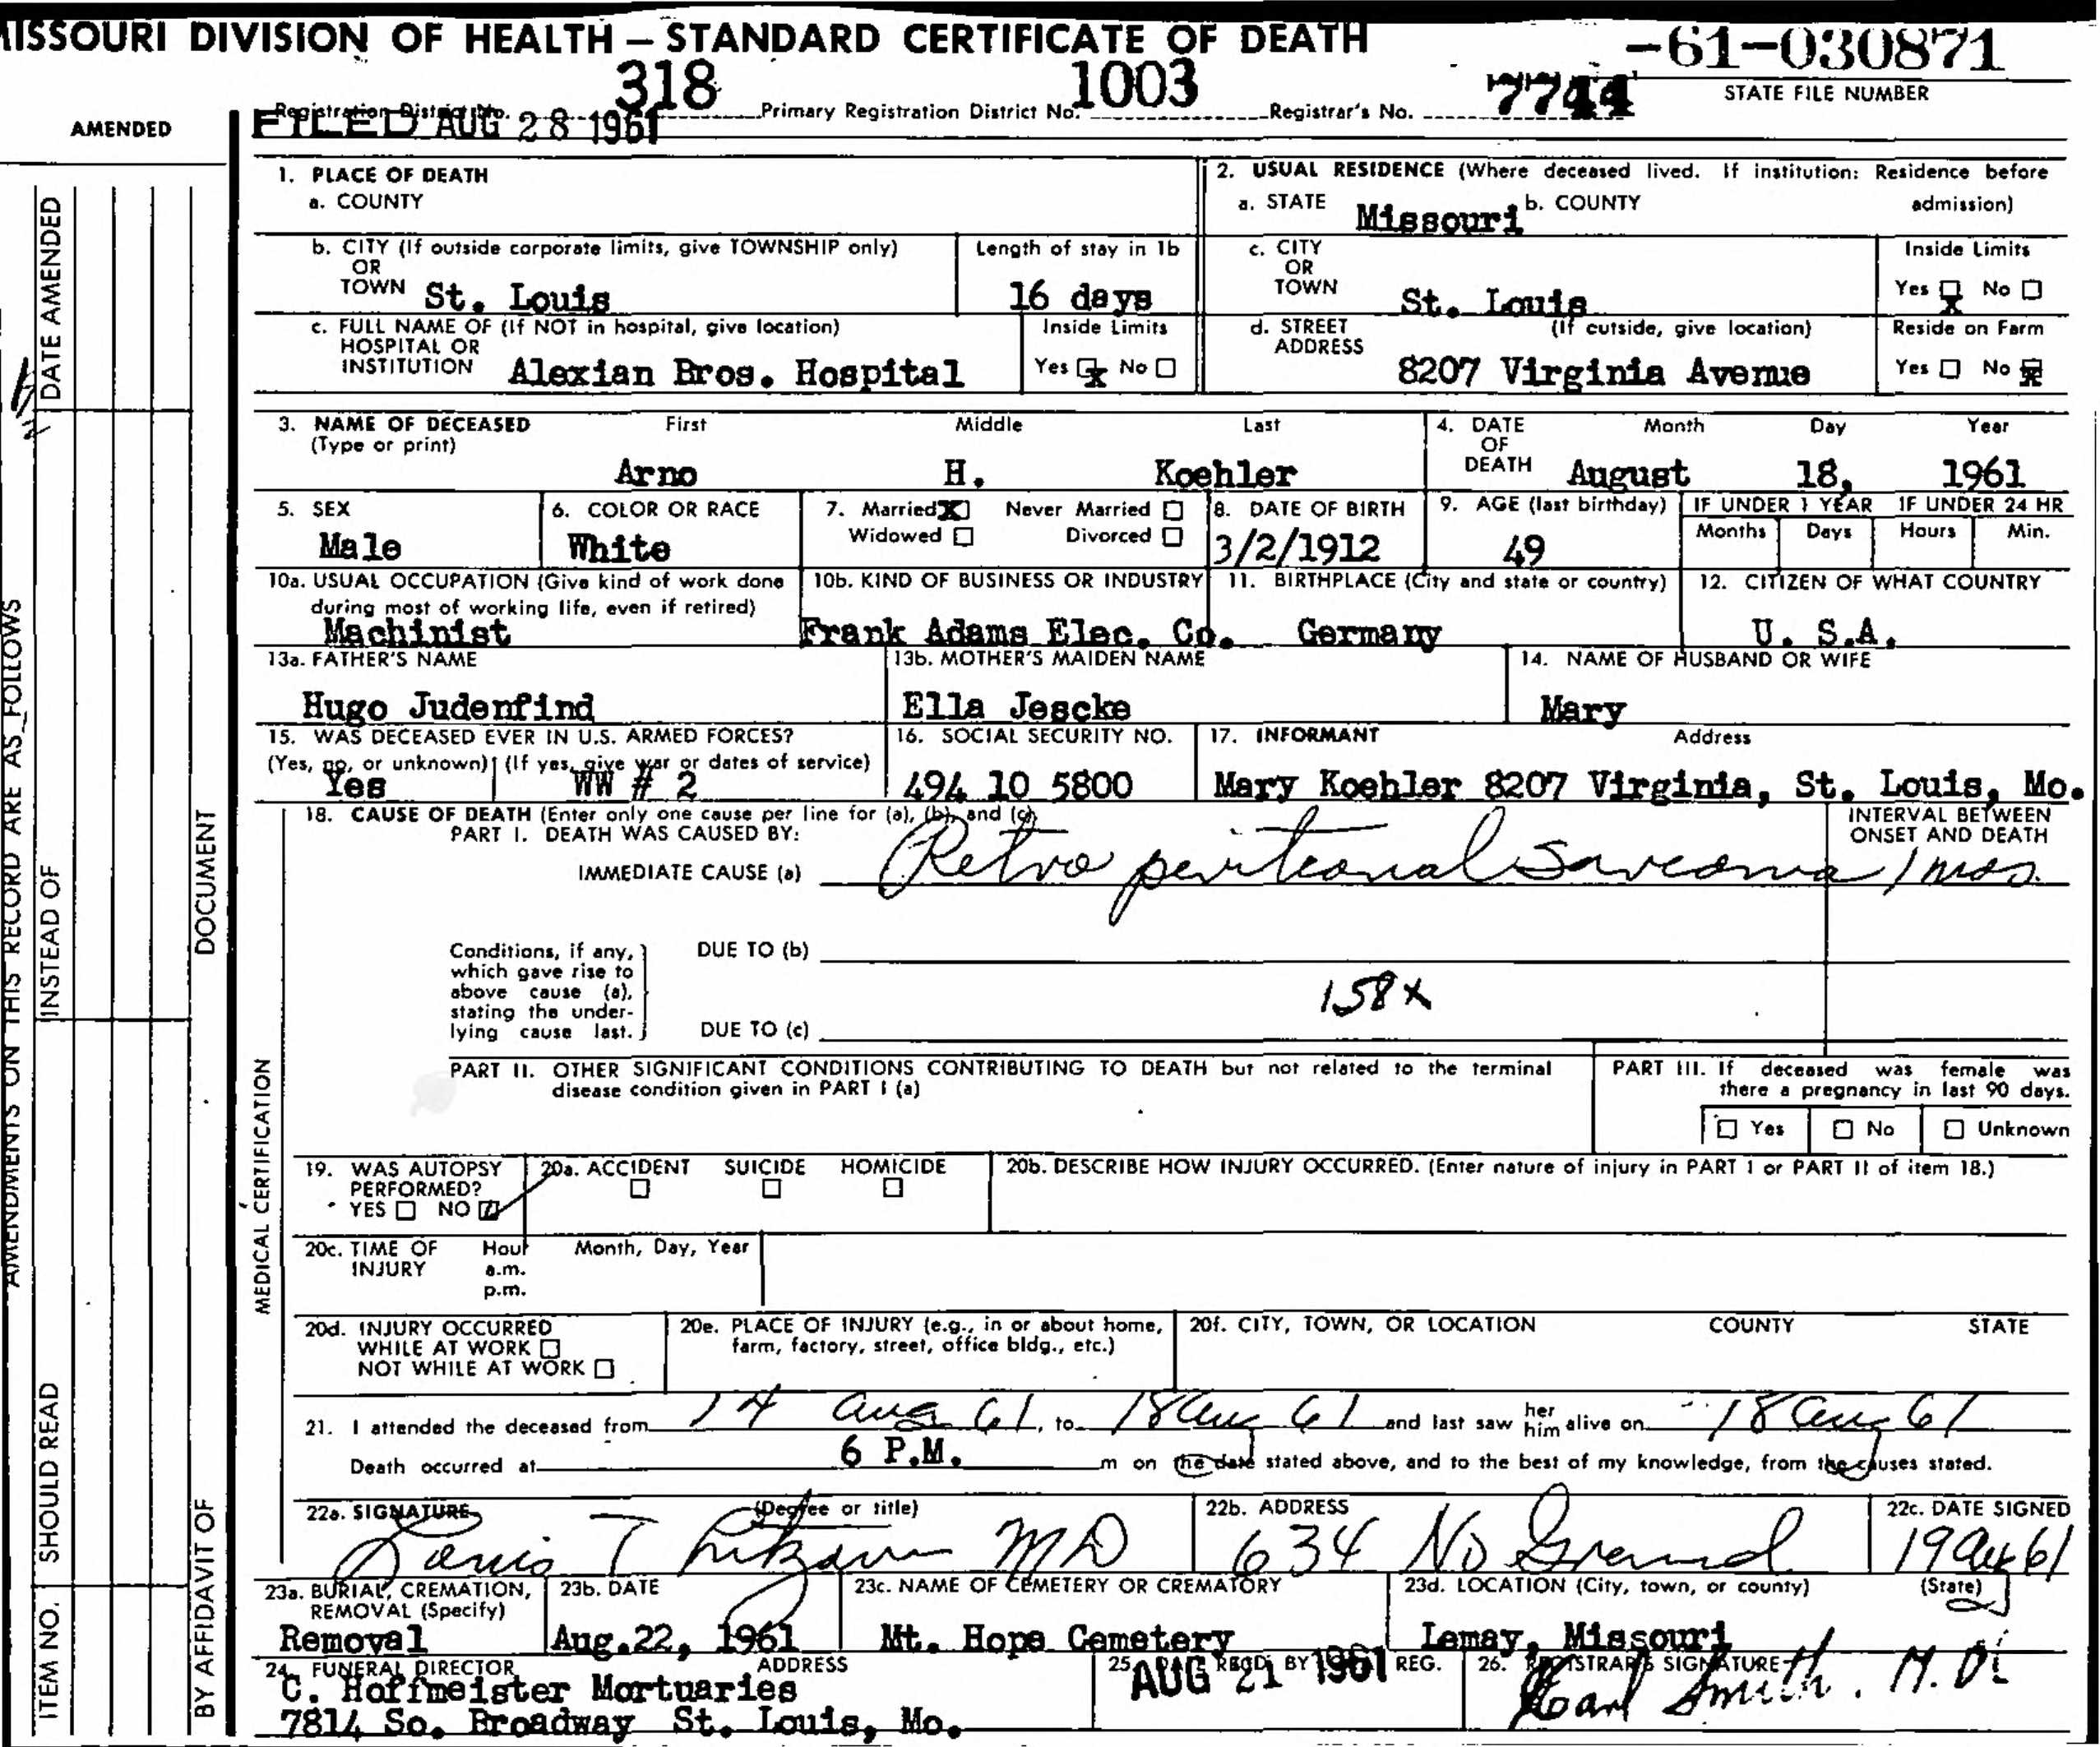 MISSOURI DIVISION OF HEALTH – STANDARD CERTIFICATE OF DEATH
-61-030871
STATE FILE NUMBER
Registration District No. 318 Primary Registration District No. 1003 Registrar's No. 7744
FILED AUG 28 1961
AMENDED
1. PLACE OF DEATH
a. COUNTY
2. USUAL RESIDENCE (Where deceased lived. If institution: Residence before admission)
a. STATE Missouri b. COUNTY
b. CITY (If outside corporate limits, give TOWNSHIP only) OR TOWN St. Louis
Length of stay in 1b 16 days
c. CITY OR TOWN St. Louis
Inside Limits Yes X No
c. FULL NAME OF (If NOT in hospital, give location) HOSPITAL OR INSTITUTION Alexian Bros. Hospital
Inside Limits Yes X No
d. STREET ADDRESS (If outside, give location) 8207 Virginia Avenue
Reside on Farm Yes No X
3. NAME OF DECEASED (Type or print)
First Middle Last
Arno H. Koehler
4. DATE OF DEATH Month Day Year
August 18, 1961
5. SEX Male
6. COLOR OR RACE White
7. Married X Never Married
Widowed Divorced
8. DATE OF BIRTH 3/2/1912
9. AGE (last birthday) 49
IF UNDER 1 YEAR Months Days
IF UNDER 24 HR Hours Min.
10a. USUAL OCCUPATION (Give kind of work done during most of working life, even if retired)
Machinist
10b. KIND OF BUSINESS OR INDUSTRY
Frank Adams Elec. Co.
11. BIRTHPLACE (City and state or country)
Germany
12. CITIZEN OF WHAT COUNTRY
U. S.A.
13a. FATHER'S NAME
Hugo Judenfind
13b. MOTHER'S MAIDEN NAME
Ella Jescke
14. NAME OF HUSBAND OR WIFE
Mary
15. WAS DECEASED EVER IN U.S. ARMED FORCES?
(Yes, no, or unknown) (If yes, give war or dates of service)
Yes WW # 2
16. SOCIAL SECURITY NO.
494 10 5800
17. INFORMANT Address
Mary Koehler 8207 Virginia, St. Louis, Mo.
18. CAUSE OF DEATH (Enter only one cause per line for (a), (b), and (c)
PART I. DEATH WAS CAUSED BY:
INTERVAL BETWEEN ONSET AND DEATH
IMMEDIATE CAUSE (a) Retro peritoneal Sarcoma
Conditions, if any, which gave rise to above cause (a), stating the underlying cause last.
DUE TO (b)
158X
DUE TO (c)
PART II. OTHER SIGNIFICANT CONDITIONS CONTRIBUTING TO DEATH but not related to the terminal disease condition given in PART I (a)
PART III. If deceased was female was there a pregnancy in last 90 days.
Yes No Unknown
19. WAS AUTOPSY PERFORMED?
YES NO
20a. ACCIDENT SUICIDE HOMICIDE
20b. DESCRIBE HOW INJURY OCCURRED. (Enter nature of injury in PART I or PART II of item 18.)
20c. TIME OF INJURY Hour a.m. p.m. Month, Day, Year
20d. INJURY OCCURRED
WHILE AT WORK
NOT WHILE AT WORK
20e. PLACE OF INJURY (e.g., in or about home, farm, factory, street, office bldg., etc.)
20f. CITY, TOWN, OR LOCATION COUNTY STATE
21. I attended the deceased from 14 Aug 61, to 18 Aug 61 and last saw her him alive on 18 Aug 61
Death occurred at 6 P.M. m on the date stated above, and to the best of my knowledge, from the causes stated.
22a. SIGNATURE (Degree or title)
Louis T MD
22b. ADDRESS
634 No Grand
22c. DATE SIGNED
19 Aug 61
23a. BURIAL, CREMATION, REMOVAL (Specify)
Removal
23b. DATE
Aug. 22, 1961
23c. NAME OF CEMETERY OR CREMATORY
Mt. Hope Cemetery
23d. LOCATION (City, town, or county) (State)
Lemay, Missouri
24. FUNERAL DIRECTOR ADDRESS
C. Hoffmeister Mortuaries
7814 So. Broadway St. Louis, Mo.
25. RECD. BY REG.
AUG 21 1961
26. REGISTRAR'S SIGNATURE
Earl Smith. M.D.
MEDICAL CERTIFICATION
AMENDMENTS ON THIS RECORD ARE AS FOLLOWS
DATE AMENDED
INSTEAD OF
DOCUMENT
SHOULD READ
ITEM NO.
BY AFFIDAVIT OF